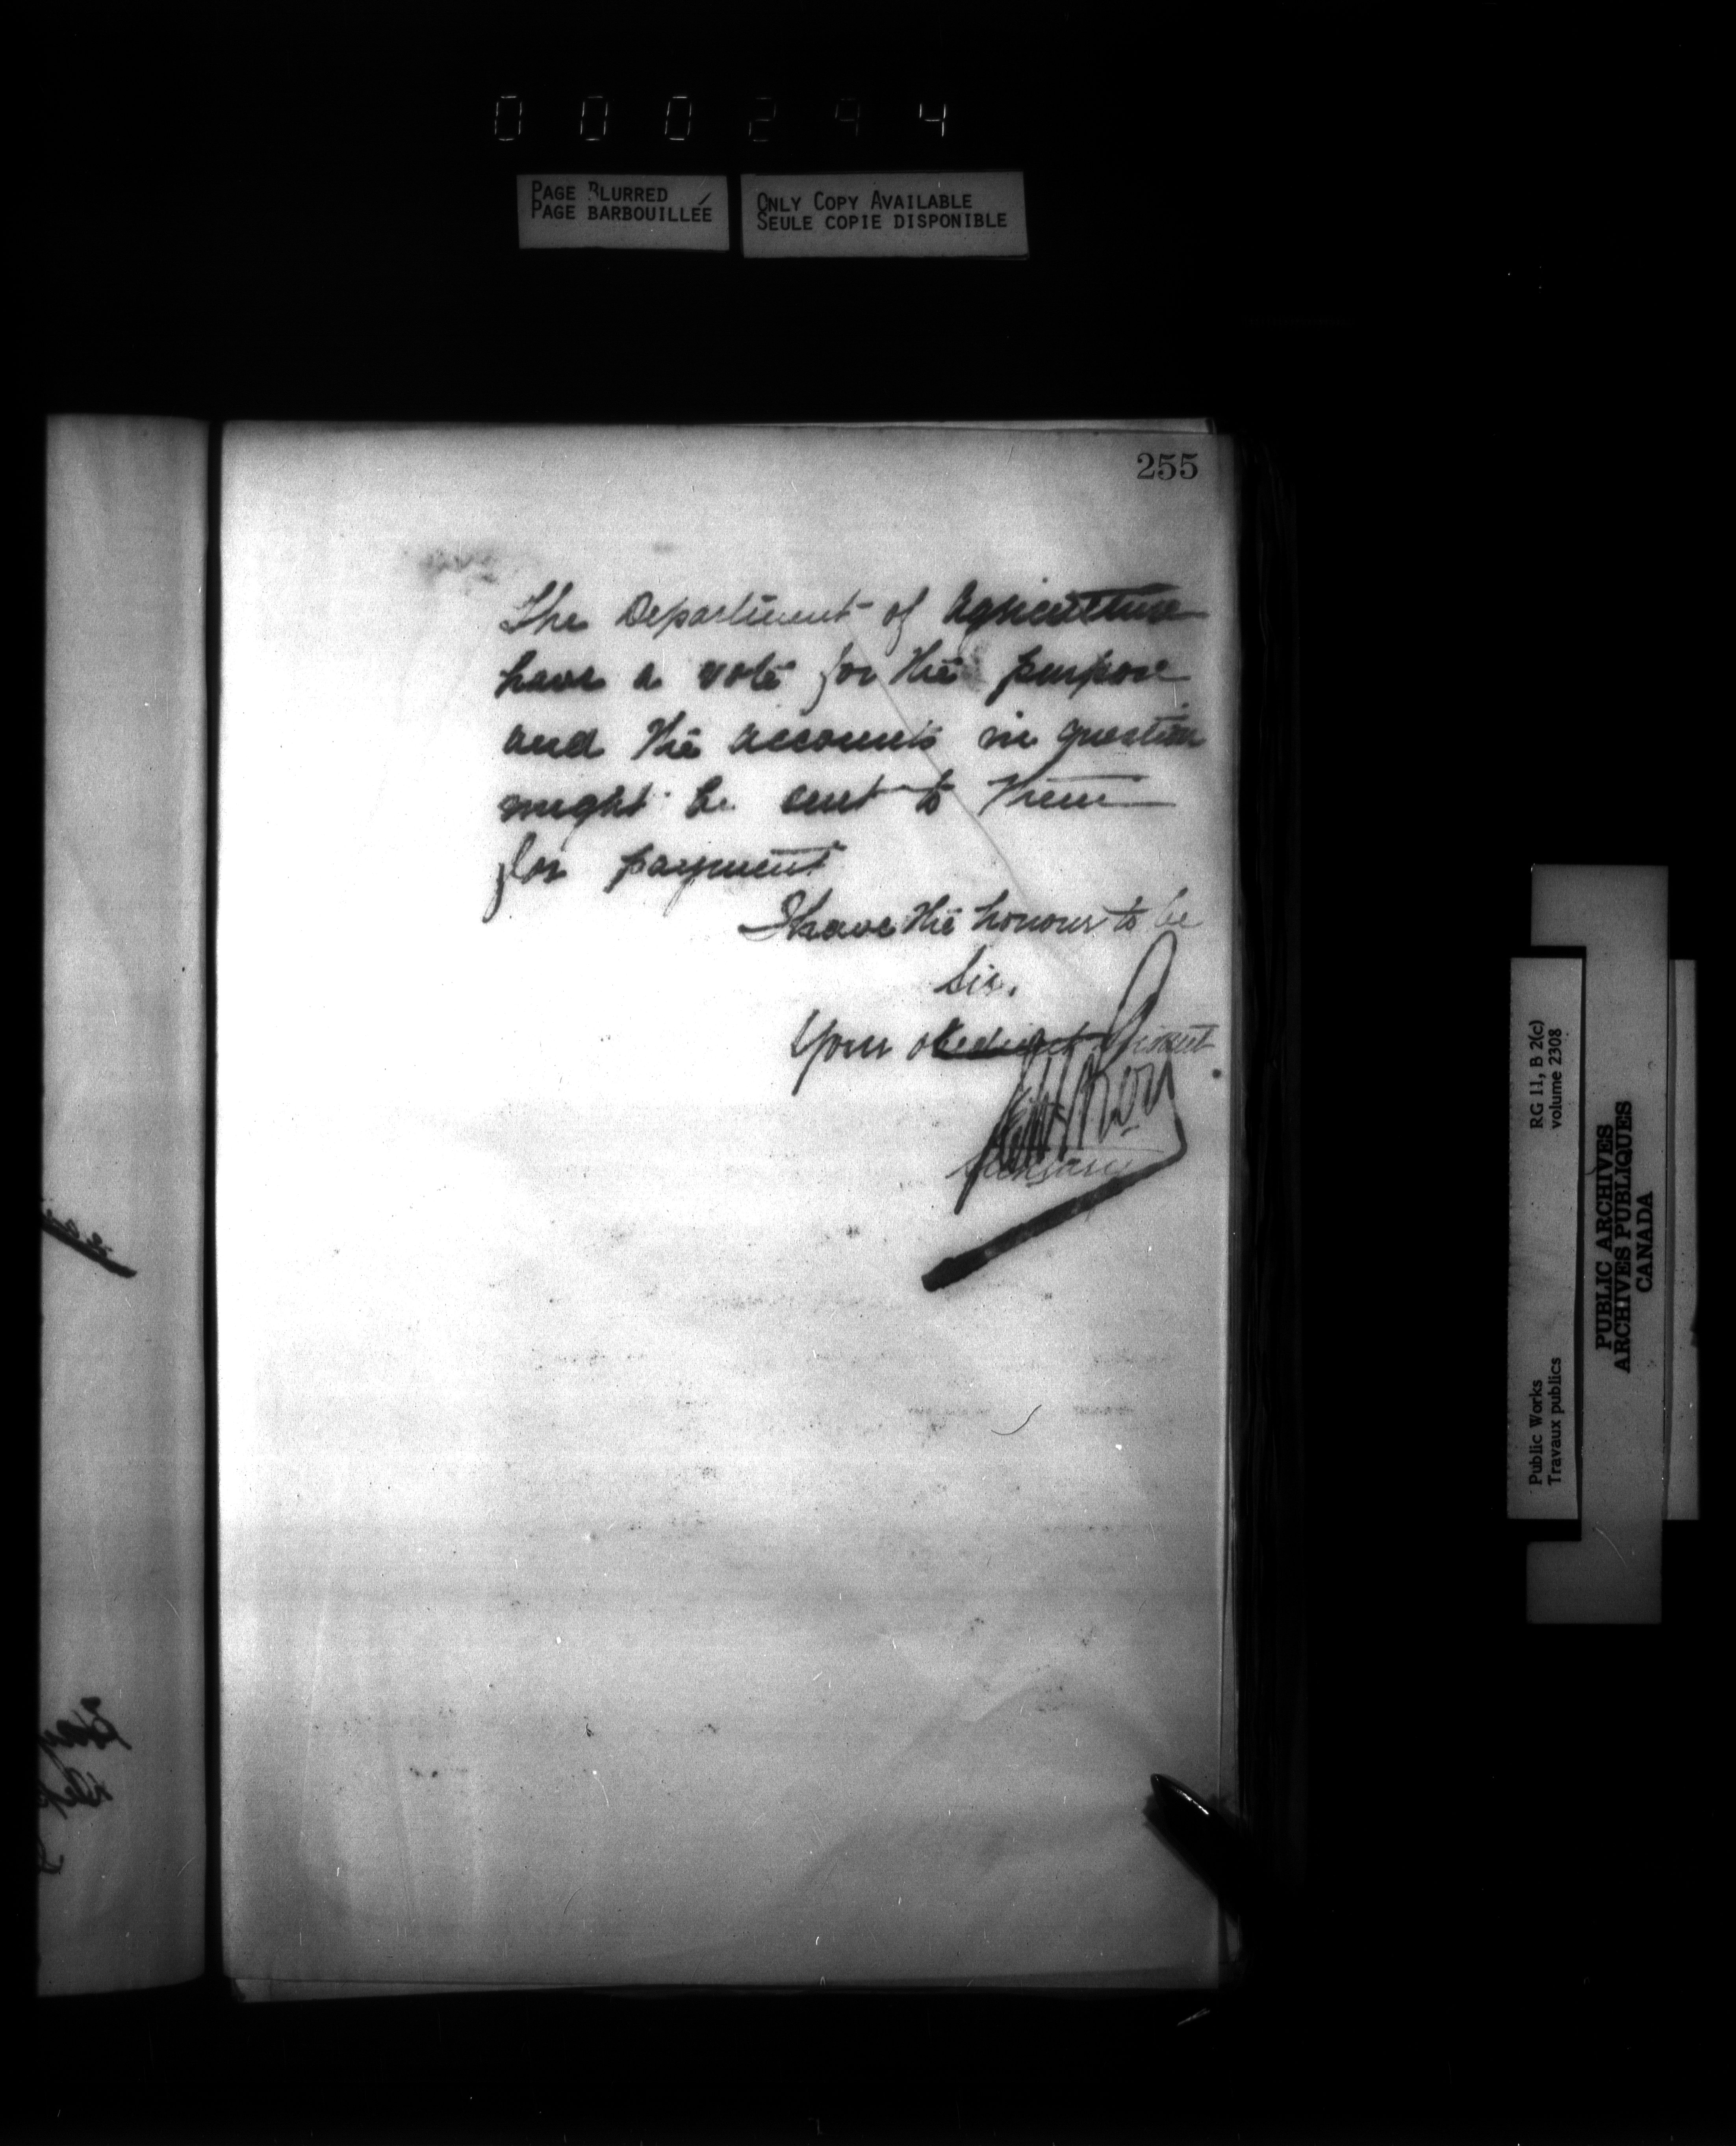 000294
PAGE BLURRED
PAGE BARBOUILLÉE
ONLY COPY AVAILABLE
SEULE COPIE DISPONIBLE
255
The Department of Agriculture
have a vote for the purpose
and the accounts in question
might be sent to them
for payment
I have the honour to be
Sir,
Your obedient Servant
Secretary
Public Works
Travaux publics
RG 11, B 2(c)
volume 2308
PUBLIC ARCHIVES
ARCHIVES PUBLIQUES
CANADA